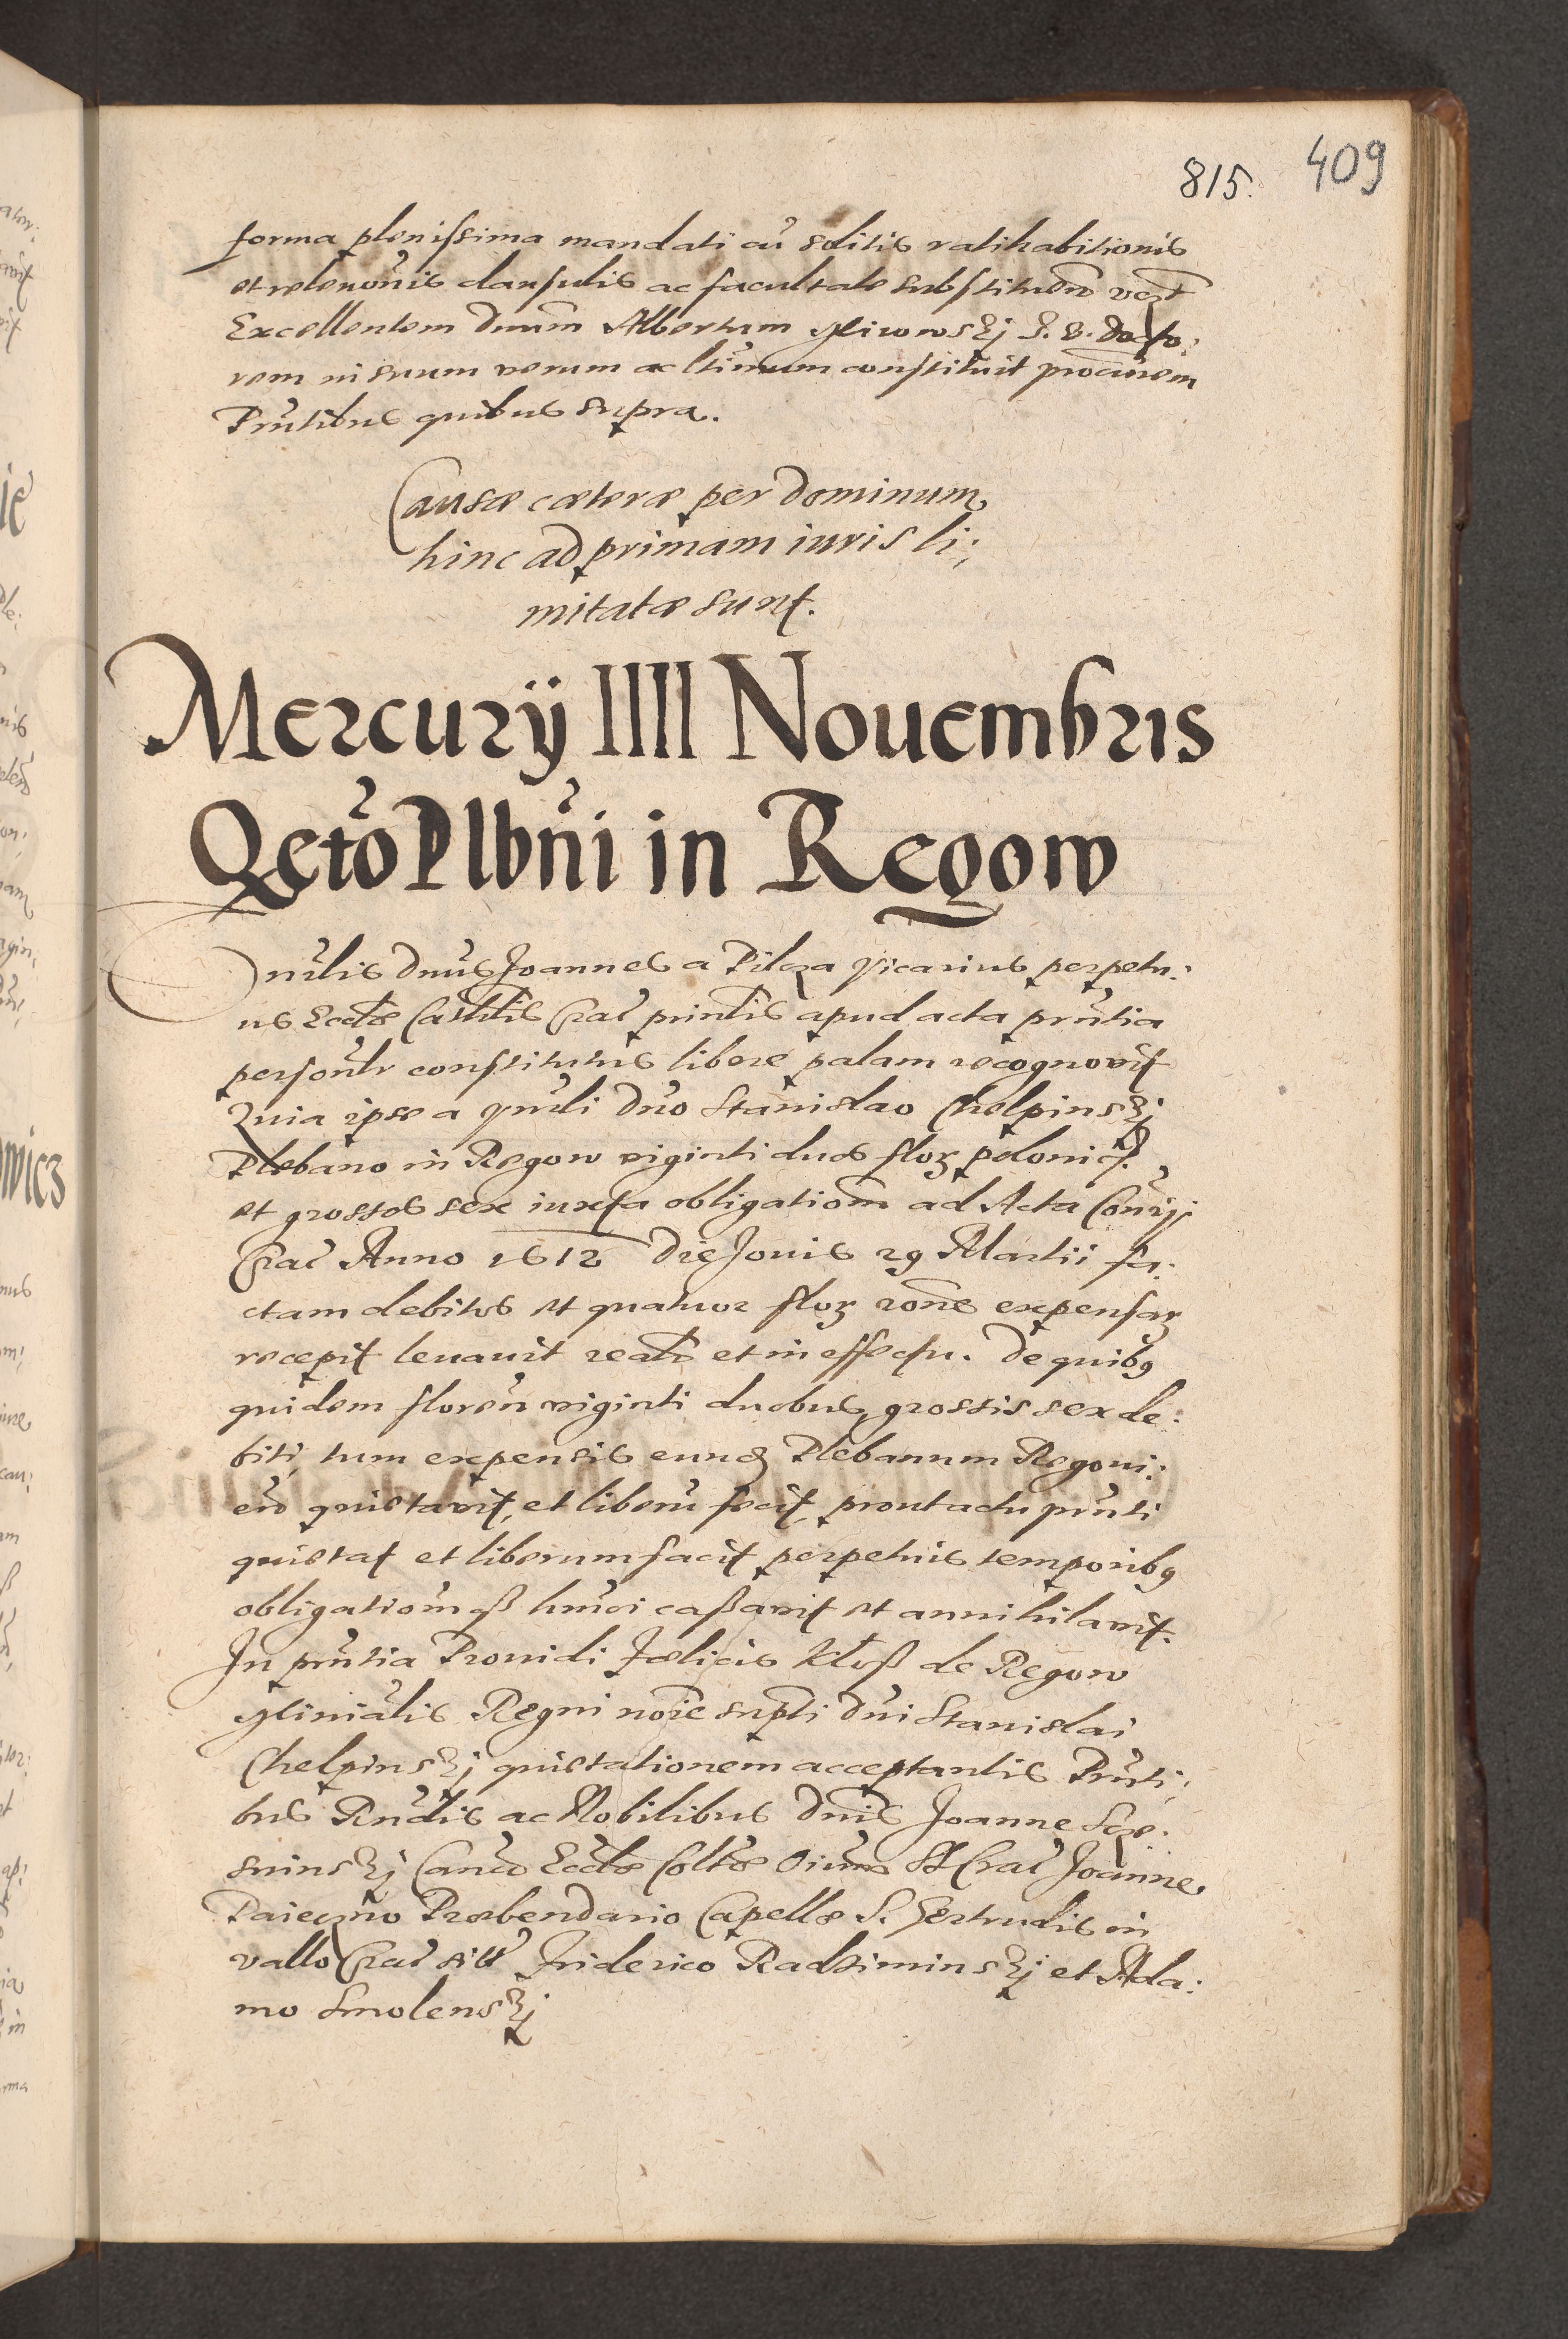 815. 409
forma plenissima mandati cũ solitis ratihabitionis
et releuõnis clausulis ac facultate substituẽn
Excellentem Dnum Albertum I. V. docto:
rem in suum verum ac ltimum constituit procũrem
Prñtibus quibus supra.
Causæ cæteræ per Dominum
hinc ad primam iuris li:
mitatæ sunt.
Mercurÿ IIII Nouembris
Qcto Plbñi in Regow
Dñus Joannes a Pilcza Vicarius perpetu:
us Ecclæ Cathlis Crac apud acta prñtia
personlr constitutus libere palam recognovit
Quia ipse a Dño Stanislao Chelpinskj
Plebano in Regow viginti duos flor polonic.
et grossos sex iuxta obligationem ad Acta
Crac Anno 1612 Die Jouis 29 Martii fa:
ctam debitos et quatuor flor rone expensar
recepit leuauit realr et in effectu. De quibq
quidem floren viginti duobus, grossis sex de:
biti, tum expensis eunđ Plebanum Regoui:
eñ quietavit, et liberũ fecit, prout actu prñti
quietat et liberum facit perpetuis temporibq
obligationemqß hmoi caßavit et annihilavit.
In prñtia Prouidi Fælicis Kloß de Regow
Regni noie supti Dñi Stanislai
Chelpinskj quietationem acceptantis Prñti:
bus Rndis ac Nobilibus Dnis Joanne
Canco Ecclæ Colltæ Oium SS Crac Joanne
Præbendario Capellæ S. Gertrudis in
vallo Crac sitæ Friderico Radziminskj et Ada:
mo Smolenskj